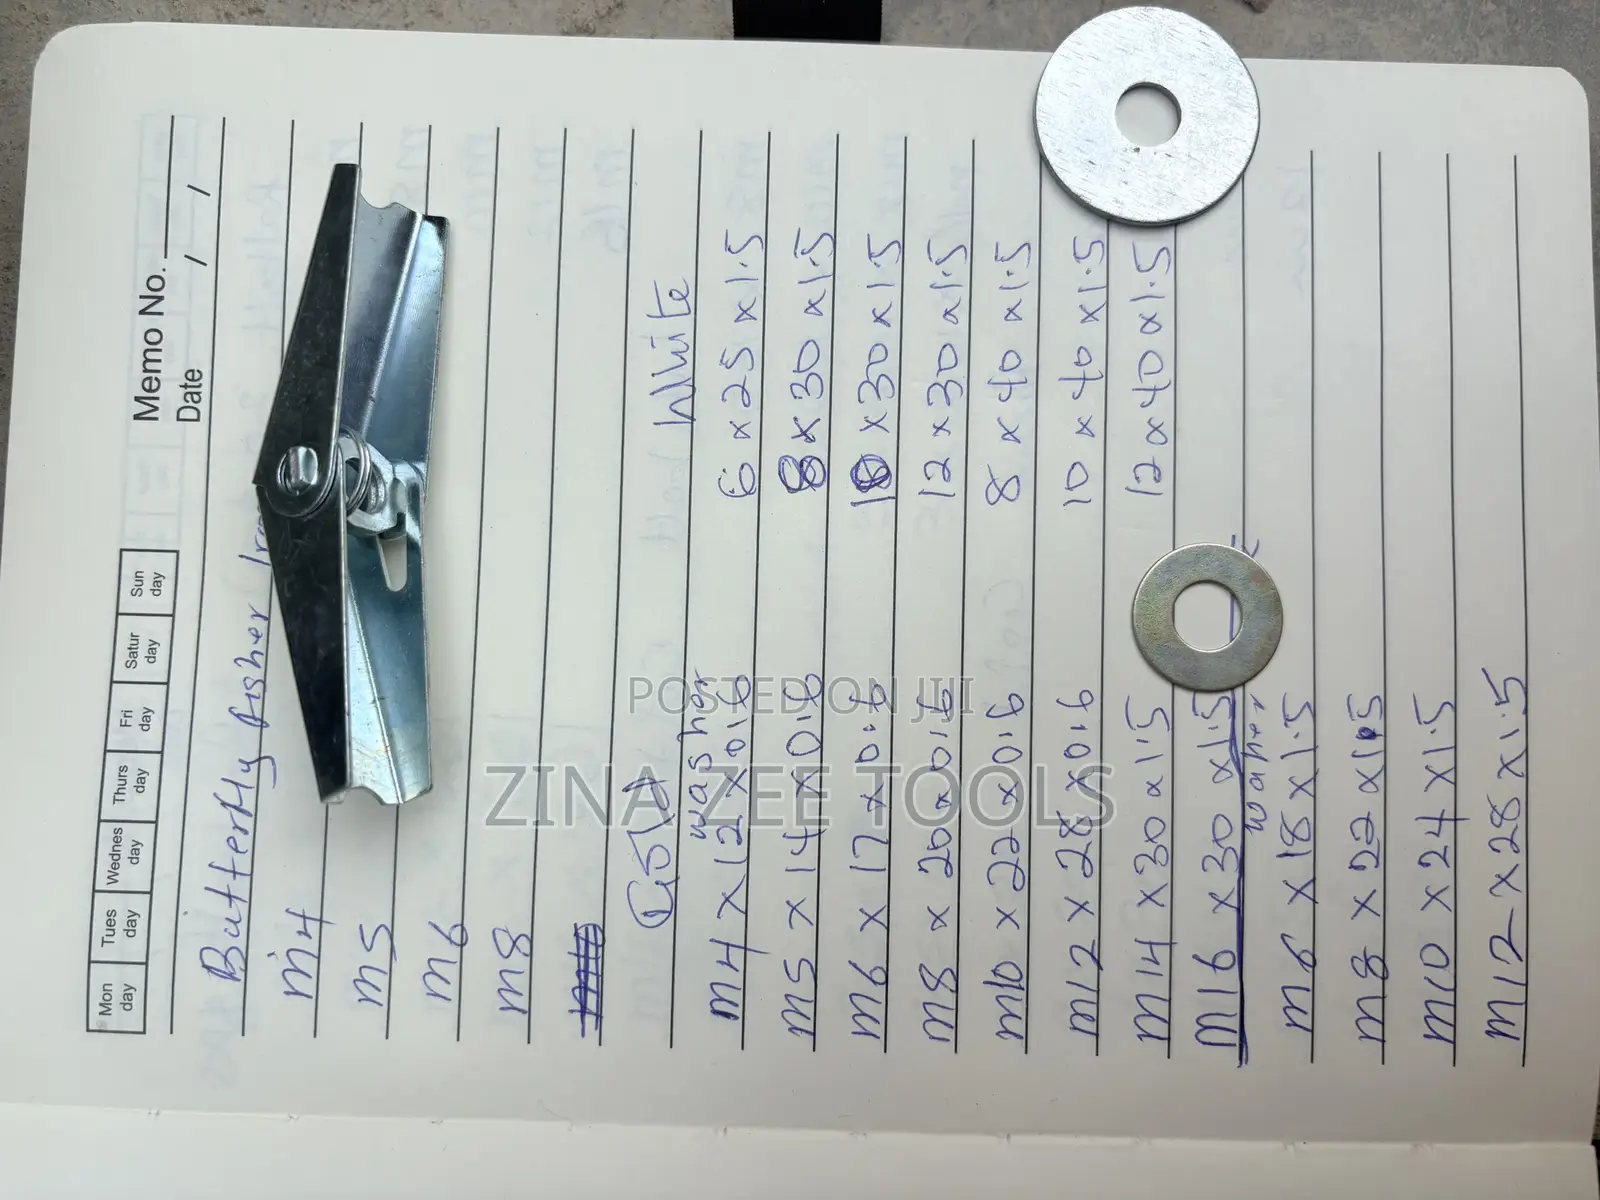 Memo No.
Date / /
Mon day Tues day Wednes day Thurs day Fri day Satur day Sun day
Butterfly fisher
m4
m5
m6
m8
Gold White
washer
m4 x 12 x 0.6 6 x 25 x 1.5
m5 x 14 x 0.6 8 x 30 x 1.5
m6 x 17 x 0.6 10 x 30 x 1.5
m8 x 20 x 0.6 12 x 30 x 1.5
m10 x 22 x 0.6 8 x 40 x 1.5
m12 x 28 x 0.6 10 x 40 x 1.5
m14 x 30 x 1.5 12 x 40 x 1.5
m16 x 30 x 1.5
waher
m6 x 18 x 1.5
m8 x 22 x 1.5
m10 x 24 x 1.5
m12 x 28 x 1.5
POSTED ON JIJI
ZINA ZEE TOOLS